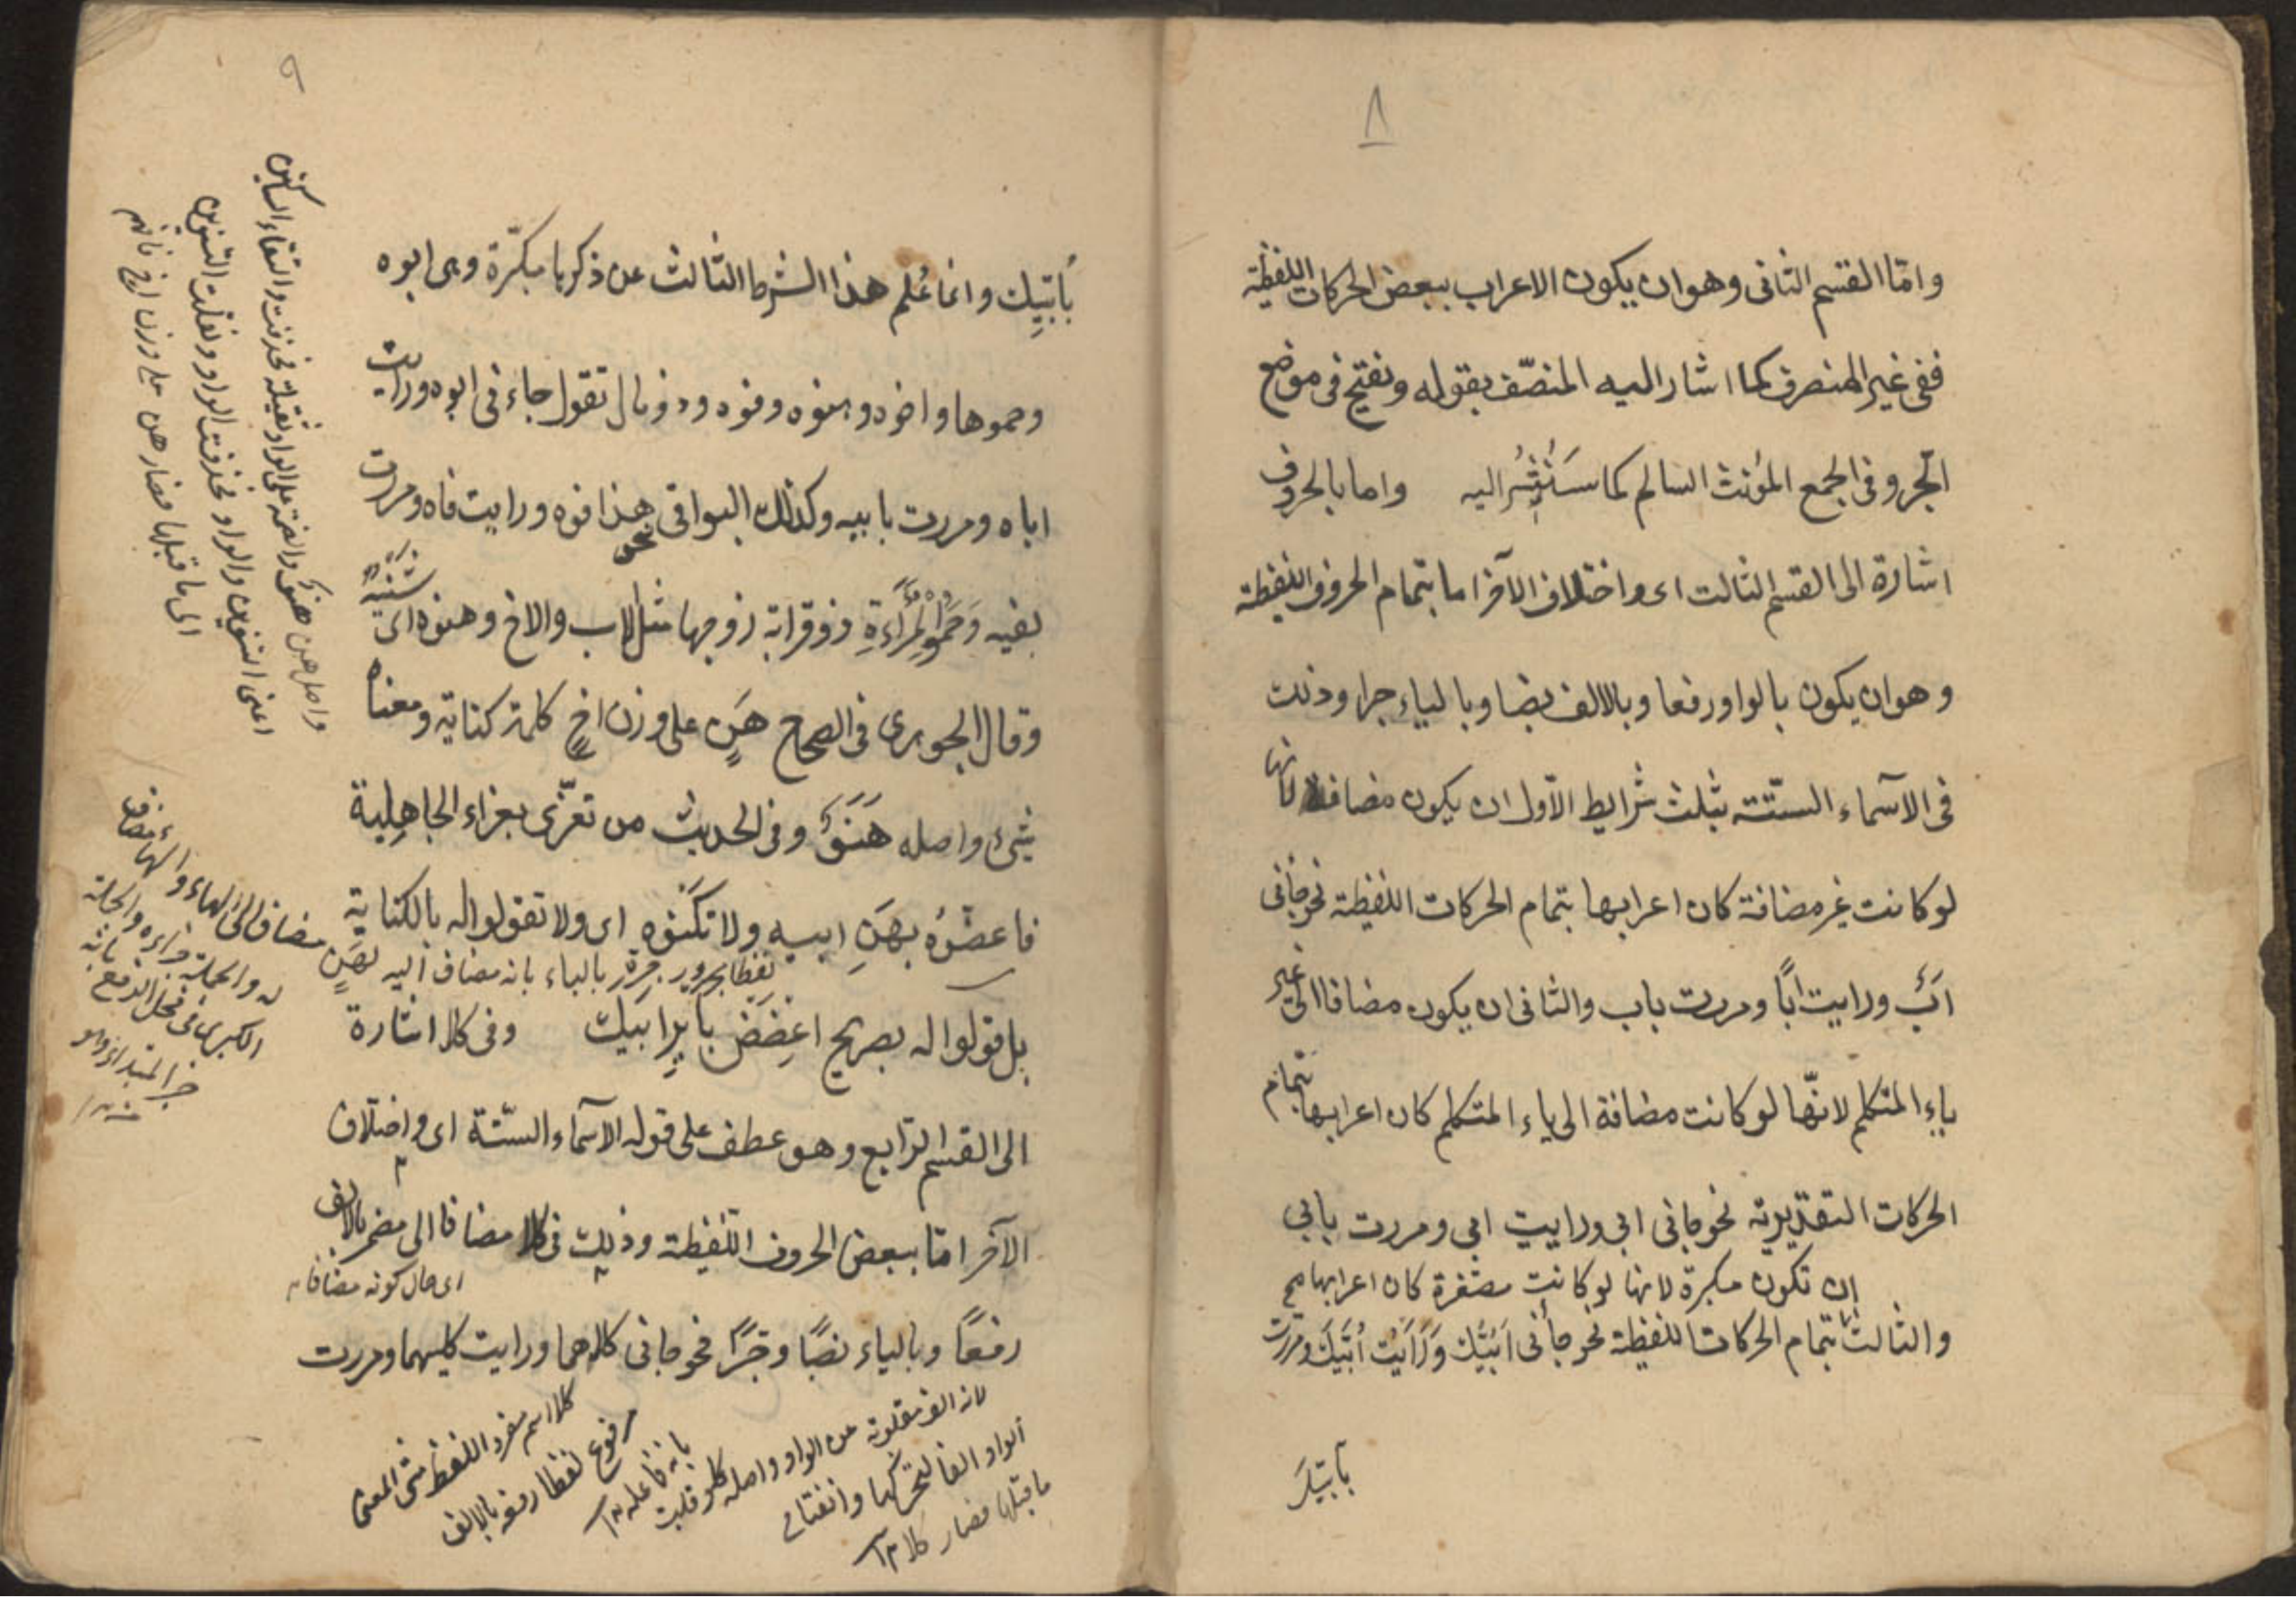 ٨
واما القسم الثانى وهو ان يكون الاعراب ببعض الحركات اللفظية
ففى غير المنصرف كما اشار اليه المنصّف بقوله ونفتح فى موضع
الجر وفى الجمع المؤنث السالم كما سَنُشِيُر اليه واما بالحروف
اشارة الى القسم الثالث اى واختلاف الآخر اما بتمام الحروف اللفظية
وهو ان يكون بالواو رفعا وبالالف نصبا وبالياء جرا وذلك
فى الآسماء الستّتة بثلث شرايط الاوّل ان يكون مضافة لانها
لو كانت غير مضافة كان اعرابها بتمام الحركات اللفظية نحو جائنى
ابٌ ورايت اباً ومررت باب والثانى ان يكون مضافا الى غير
ياء المتكلم لانّها لو كانت مضافة الى ياء المتكلم كان اعرابها بتمام
الحركات التقديرية نحو جانى ابى ورايت ابى ومررت بابى
ان تكون مكبرة لانها لو كانت مصغرة كان اعرابها صح
والثالث بتمام الحركات اللفظية نحو جأنى اُبَيُّك وَرَاَيْتُ اُبَيَّكَ ومررت
بأبيّك
٩
بُأبَيِّك وانما عُلم هذا الشرط الثالث عن ذكرها مكبّرة وهى ابوه
وحموها واخوه وهنوه وفوه وذو مال تقول جاءنى ابوه ورايت
اباه ومررت بابيه وكذلك البواقى نحو هذا فوه ورايت فاه ومررت
بفيه وَحَمُو الْمَرْأَةِ ذو قرابة زوجها مثل الاب والاخ وهنوه اى شَنِيُه
وقال الجوهرى فى الصحاح هَنٍ على وزن اخٍ كلمة كناية ومعناه
شئ واصله هَنَوٌ وفى الحديث من تعزّى بعزاء الجاهلية
فاعضّوُه بهَنِ ابيه ولا تكَنوه اى ولا تقولوا له بالكناية
لفظا مجرور جرّه بالياء بانه مضاف اليه لهَنٍ
بل قولوا له بصريح اعِضَضْ باَيرِ اَبيك وفى كلا اشارة
الى القسم الرّابع وهو عطف على قوله الآسماء الستّة اى واختلاف
الآخر امّا ببعض الحروف اللفظية وذلك فى كلا مضافا الى مضمر بالالف
اى حال كونه مضافا
رفعًا وبالياء نصبًا وجرًا نحو جانى كلاهما ورايت كليهما ومررت
كلا اسم مفرد اللفظ مثنى المعنى
مرفوع لفظا رفعه بالالف
بانه فاعله
لانه الف مقلوبة عن الواو واصله كلو قلبت
الواو الفا لتحركها وانفتاح
ما قبلها فصار كلا
واصل هن هنوٌ والضمة على الواو ثقيلة فحذفت والتقاء الساكنين
اعنى التنوين والواو فحذفت الواو ونقلت التنوين
الى ما قبلها فصار هن على وزن اخ